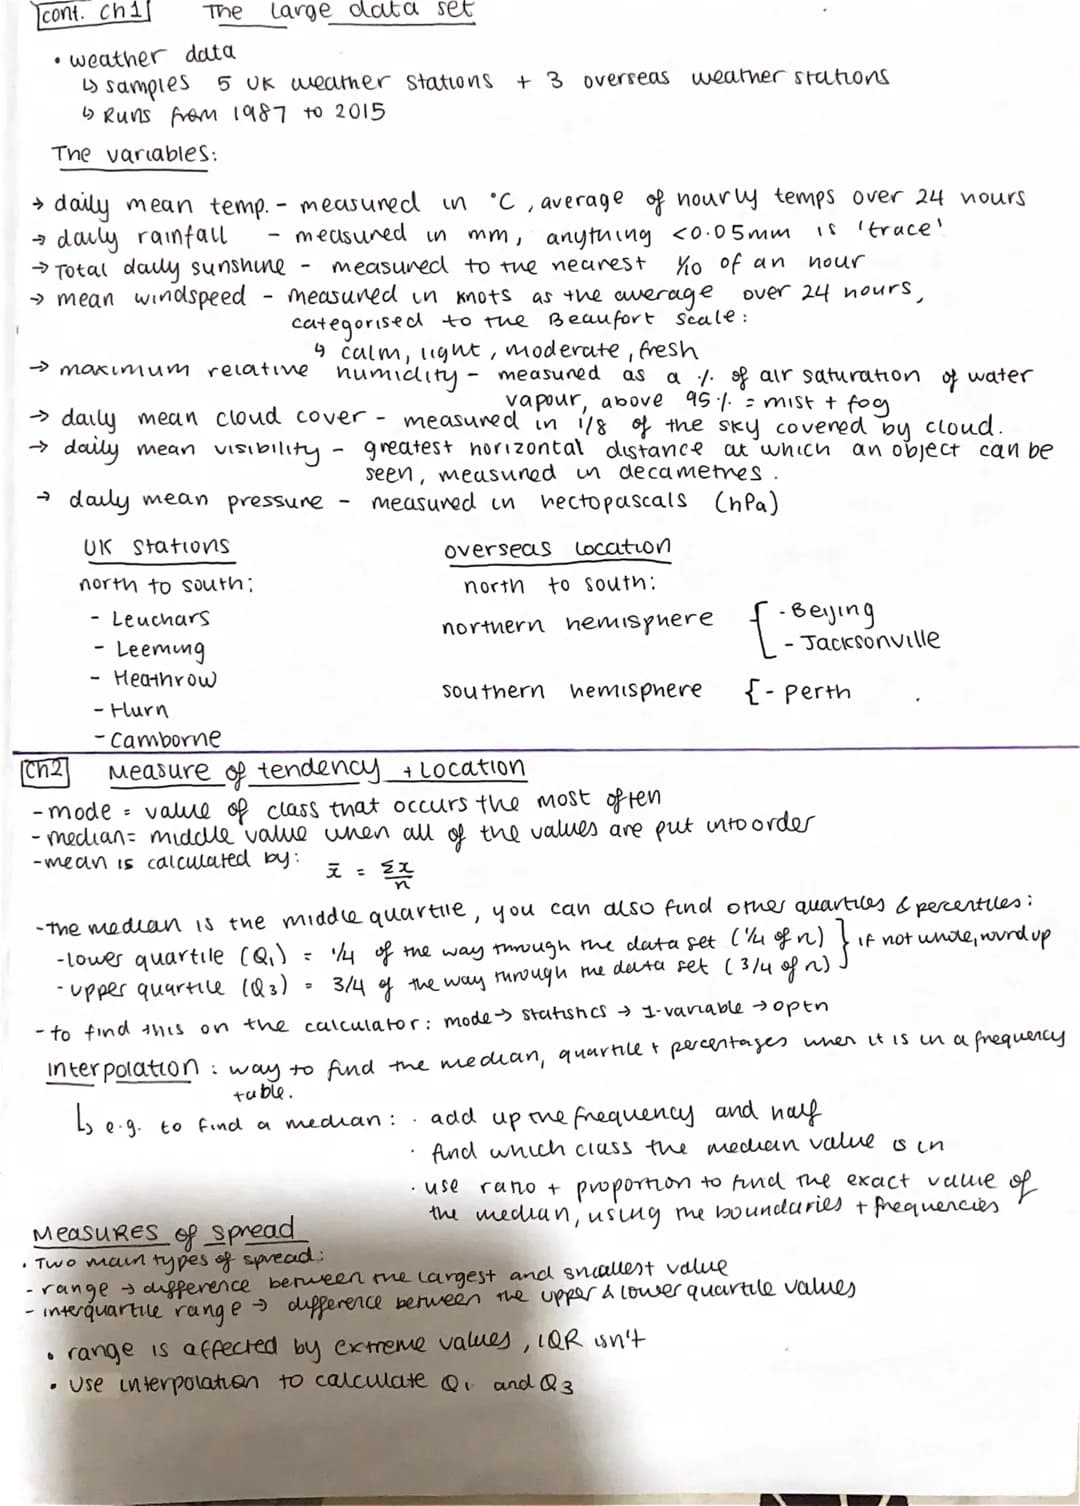 cont. ch1 The large data set
• weather data
↳ samples 5 UK weather stations + 3 overseas weather stations
↳ Runs from 1987 to 2015
The variables:
→ daily mean temp. - measured in °C, average of hourly temps over 24 hours
→ daily rainfall - measured in mm, anything <0.05mm is 'trace'
→ Total daily sunshine - measured to the nearest 1/10 of an hour
→ mean windspeed - measured in knots as the average over 24 hours,
categorised to the Beaufort scale:
↳ calm, light, moderate, fresh
→ maximum relative humidity - measured as a % of air saturation of water
vapour, above 95% = mist + fog
→ daily mean cloud cover - measured in 1/8 of the sky covered by cloud.
→ daily mean visibility - greatest horizontal distance at which an object can be
seen, measured in decametres.
→ daily mean pressure - measured in hectopascals (hPa)
UK stations
north to south:
- Leuchars
- Leeming
- Heathrow
- Hurn
- Camborne
overseas location
north to south:
northern hemisphere { - Beijing
- Jacksonville
southern hemisphere { - perth
Ch2 Measure of tendency + Location
- mode = value of class that occurs the most often
- median = middle value when all of the values are put into order
- mean is calculated by: x̄ = Σx/n
- the median is the middle quartile, you can also find other quartiles & percentiles:
- lower quartile (Q₁) = 1/4 of the way through the data set (1/4 of n) } if not whole, round up
- upper quartile (Q₃) = 3/4 of the way through the data set (3/4 of n)
- to find this on the calculator: mode → statistics → 1-variable → optn
interpolation: way to find the median, quartile + percentages when it is in a frequency
table.
↳ e.g. to find a median: · add up the frequency and half
· find which class the median value is in
· use ratio + proportion to find the exact value of
the median, using the boundaries + frequencies
Measures of spread
• Two main types of spread:
- range → difference between the largest and smallest value
- interquartile range → difference between the upper & lower quartile values
• range is affected by extreme values, IQR isn't
• Use interpolation to calculate Q₁ and Q₃